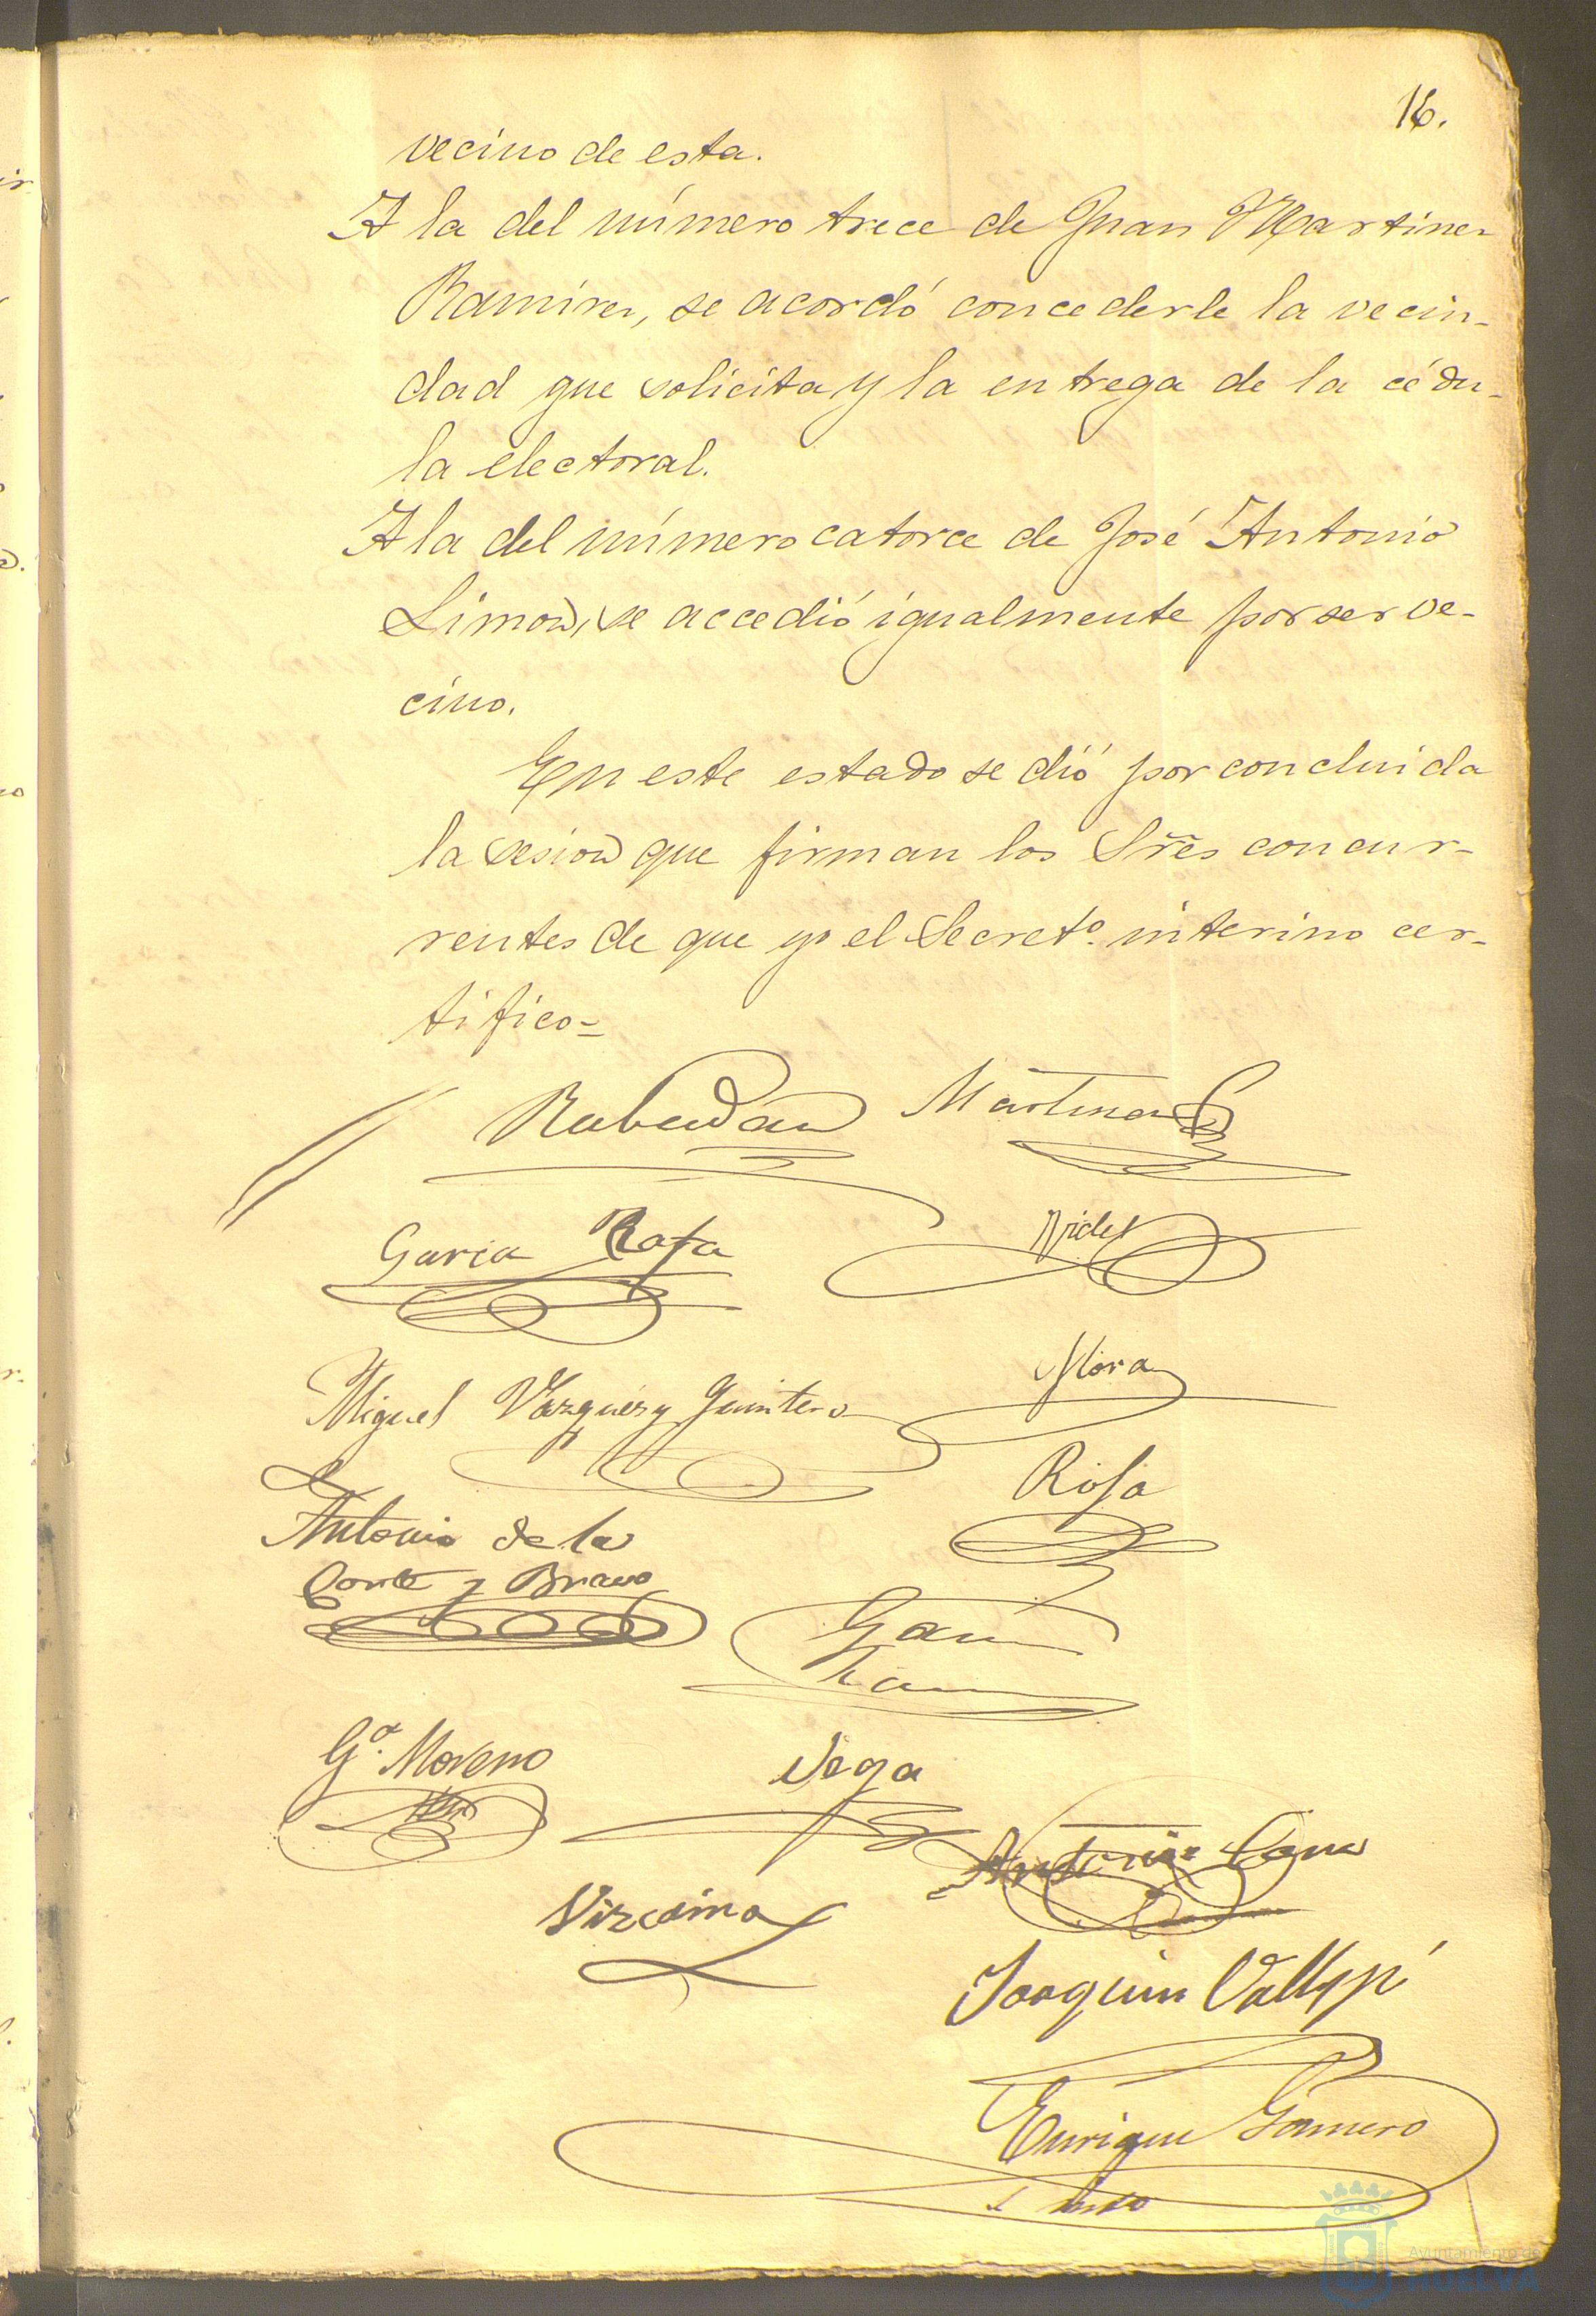 16.
vecino de esta.
A la del número trece de Juan Martinez
Ramirez, se acordó concederle la vecin-
dad que solicita y la entrega de la cédu-
la electoral.
A la del número catorce de José Antonio
Limon, se accedió igualmente por ser ve-
cino.
En este estado se dió por concluida
la sesion que firman los Sres concur-
rentes de que yo el Secretº. interino cer-
tifico=
Rabadan Martinez
Garcia Rafa
Mora
Miguel Vázquez y Quintero
Rosa
Antonio de la
Corte y Bravo
Gª. Moreno Vega
Antonio
Vizcaino
Joaquin
Enrique
Ayuntamiento de
HUELVA